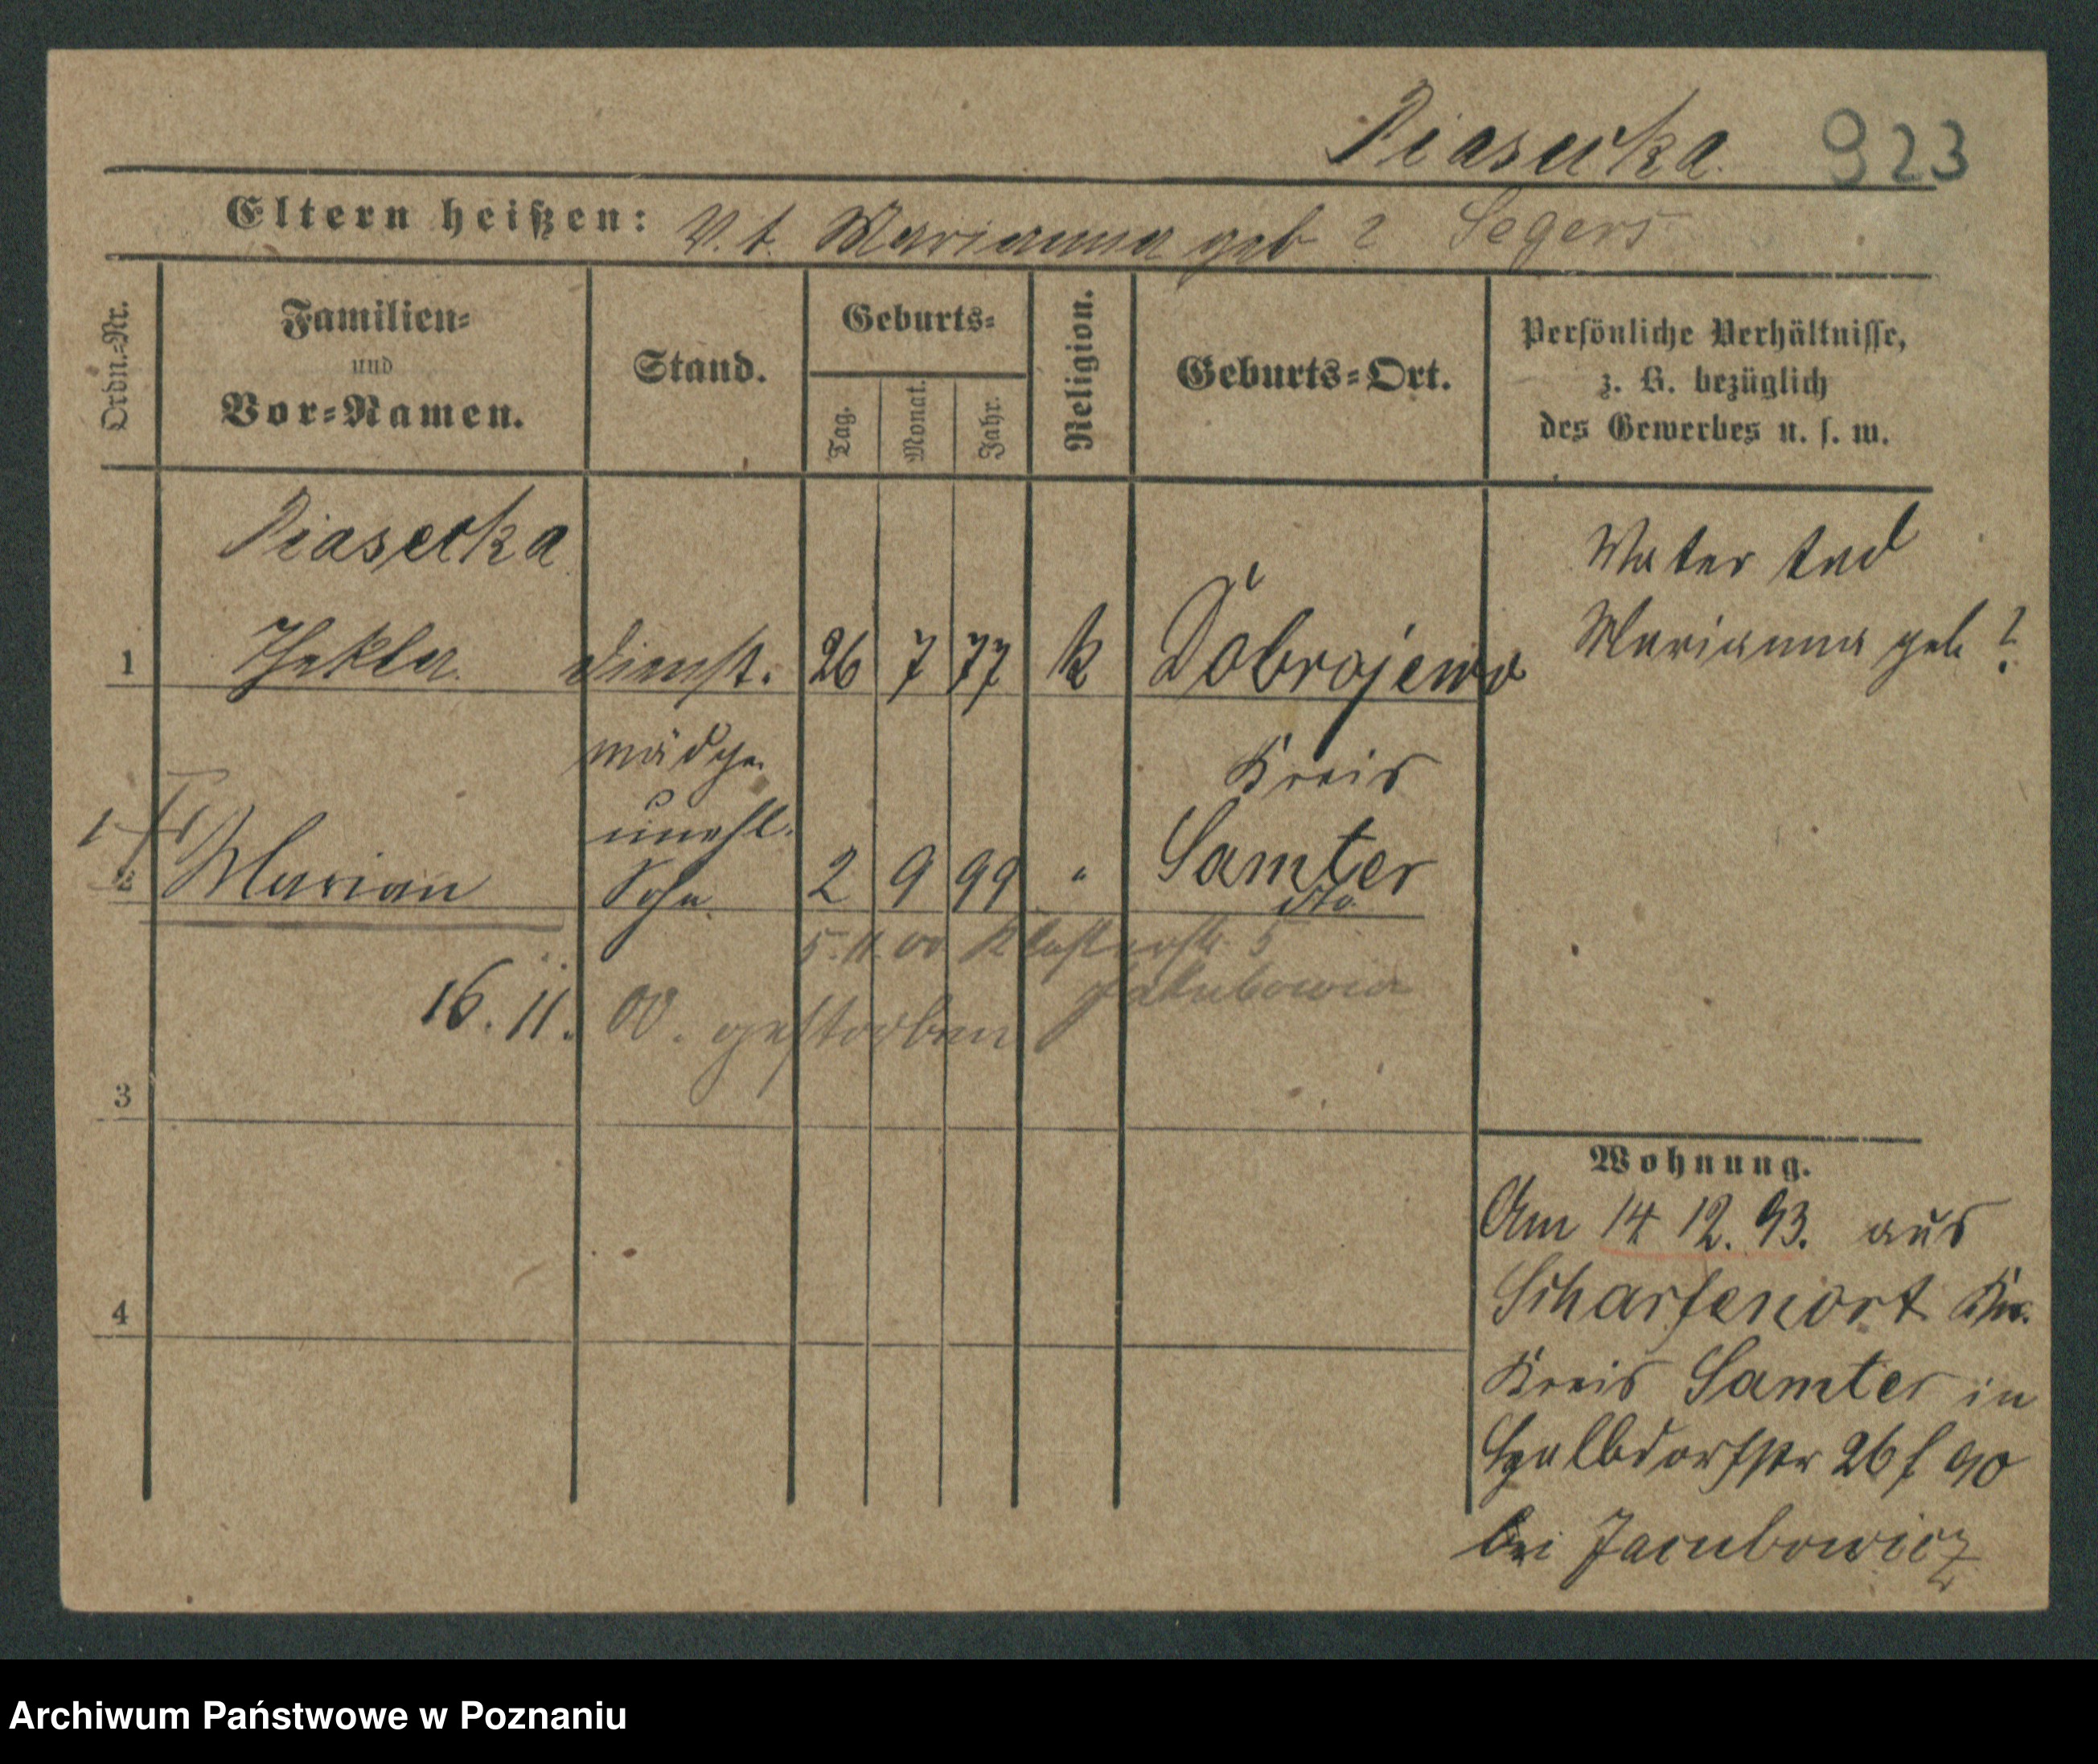 Piasecka. 923
Eltern heißen: V. t. Marianna geb ? Segers
Ordn.-Nr.
Familien-
und
Vor-Namen.
Stand.
Geburts-
Tag.
Monat.
Jahr.
Religion.
Geburts-Ort.
Persönliche Verhältnisse,
z. B. bezüglich
des Gewerbes u. s. w.
Piasecka
1 Thekla. Dienst. 26 7 77 k Dobrojewo
mädch.
Kreis
Samter
Vater tod
Marianna geb ?
unehl.
2 Marian Sohn 2 9 99 " dto
5.11.00 Klosterstr. 5
Jakubowicz
16. 11. 00. gestorben
3
4
Wohnung.
Am 14 12. 93. aus
Scharfenort
Kreis Samter in
Halbdorfstr 26 f 90
bei Jacubowicz
Archiwum Państwowe w Poznaniu